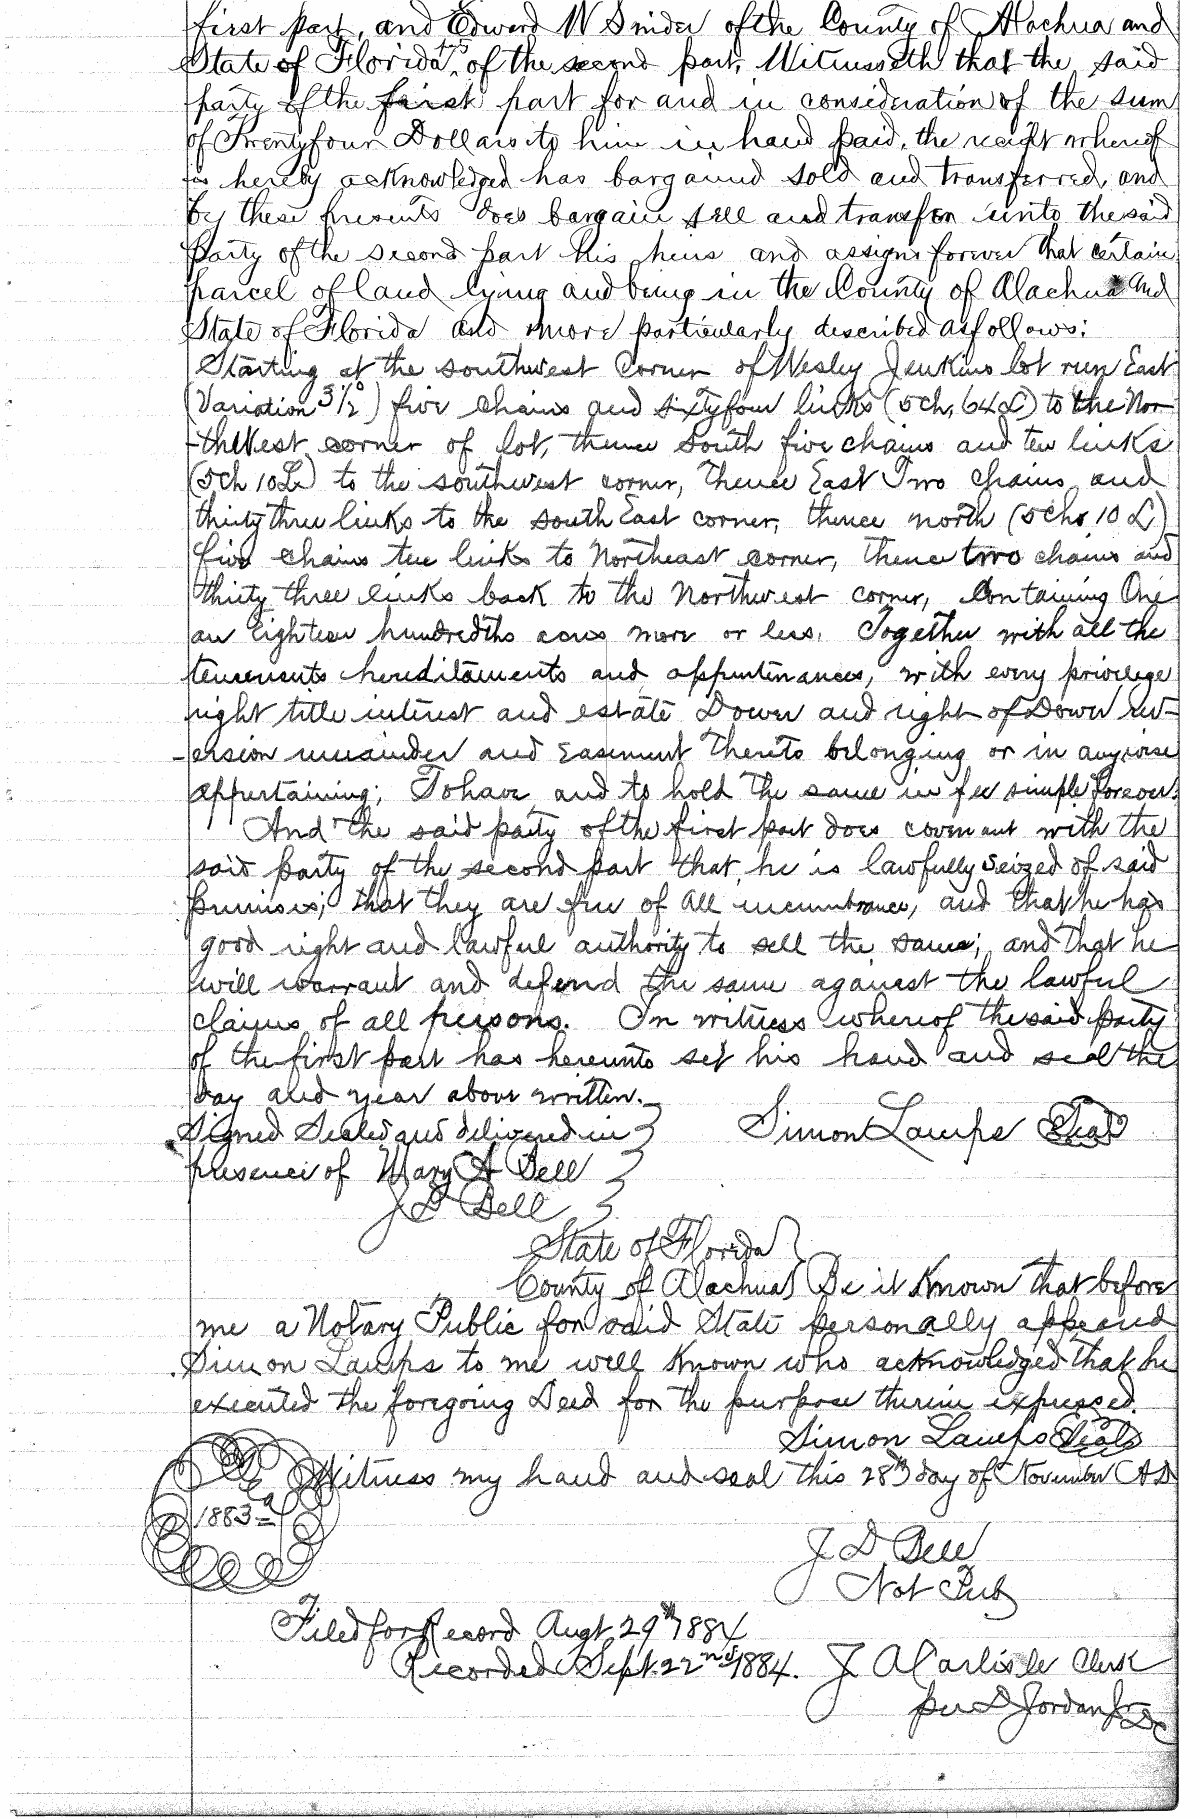 first part, and Edward W Snider of the County of Alachua and
State of Florida, of the second part, Witnesseth that the said
party of the first part for and in consideration of the sum
of Twentyfour Dollars to him in hand paid, the receipt whereof
is hereby acknowledged has bargained sold and transferred, and
by these presents does bargain sell and transfer unto the said
Party of the second part his heirs and assigns forever that certain
parcel of land lying and being in the County of Alachua and
State of Florida and more particularly described as follows:
Starting at the southwest Corner of Wesley Jenkins lot run East
(Variation 3½°) five chains and sixtyfour links (5ch, 64 L) to the Nor-
-thWest corner of lot, thence South five chains and ten links
(5ch 10L) to the southwest corner, Thence East Two chains and
thirty three links to the South East corner, thence north (5chs 10 L)
five chains ten links to Northeast corner, thence two chains and
thirty three links back to the Northwest corner, Containing One
an Eighteen hundredths acres more or less. Together with all the
tenements hereditaments and appurtenances, with every privilege
right title interest and estate Dower and right of Dower rev-
-ersion remainder and Easement thereto belonging or in anywise
appertaining; To have and to hold the same in fee simple forever.
And the said party of the first part does covenant with the
said party of the second part that he is lawfully Seized of said
premises; that they are free of all incumbrances, and that he has
good right and lawful authority to sell the same; and that he
will warrant and defend the same against the lawful
claims of all persons. In witness whereof the said party
of the first part has hereunto set his hand and seal the
day and year above written.
Signed Sealed and delivered in Simon Lamps Seal
presence of Mary A Bell
J D Bell
State of Florida
County of Alachua Be it Known that before
me a Notary Public for said State personally appeared
Simon Lamps to me well Known who acknowledged that he
executed the foregoing Deed for the purpose therein expressed.
Simon Lamps Seal
Witness my hand and seal this 28th day of November AD
1883
J D Bell
Not Pub
Filed for Record Augt 29th 1884
Recorded Sept. 22nd 1884. J A Carlisle Clerk
per D Jordan Jr
DC